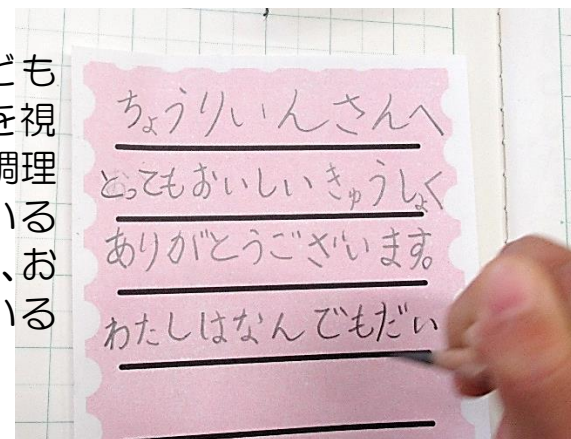 ども
を視
調理
いる
、お
いる
ちょうりいんさんへ
とってもおいしいきゅうしょく
ありがとうございます。
わたしはなんでもだい